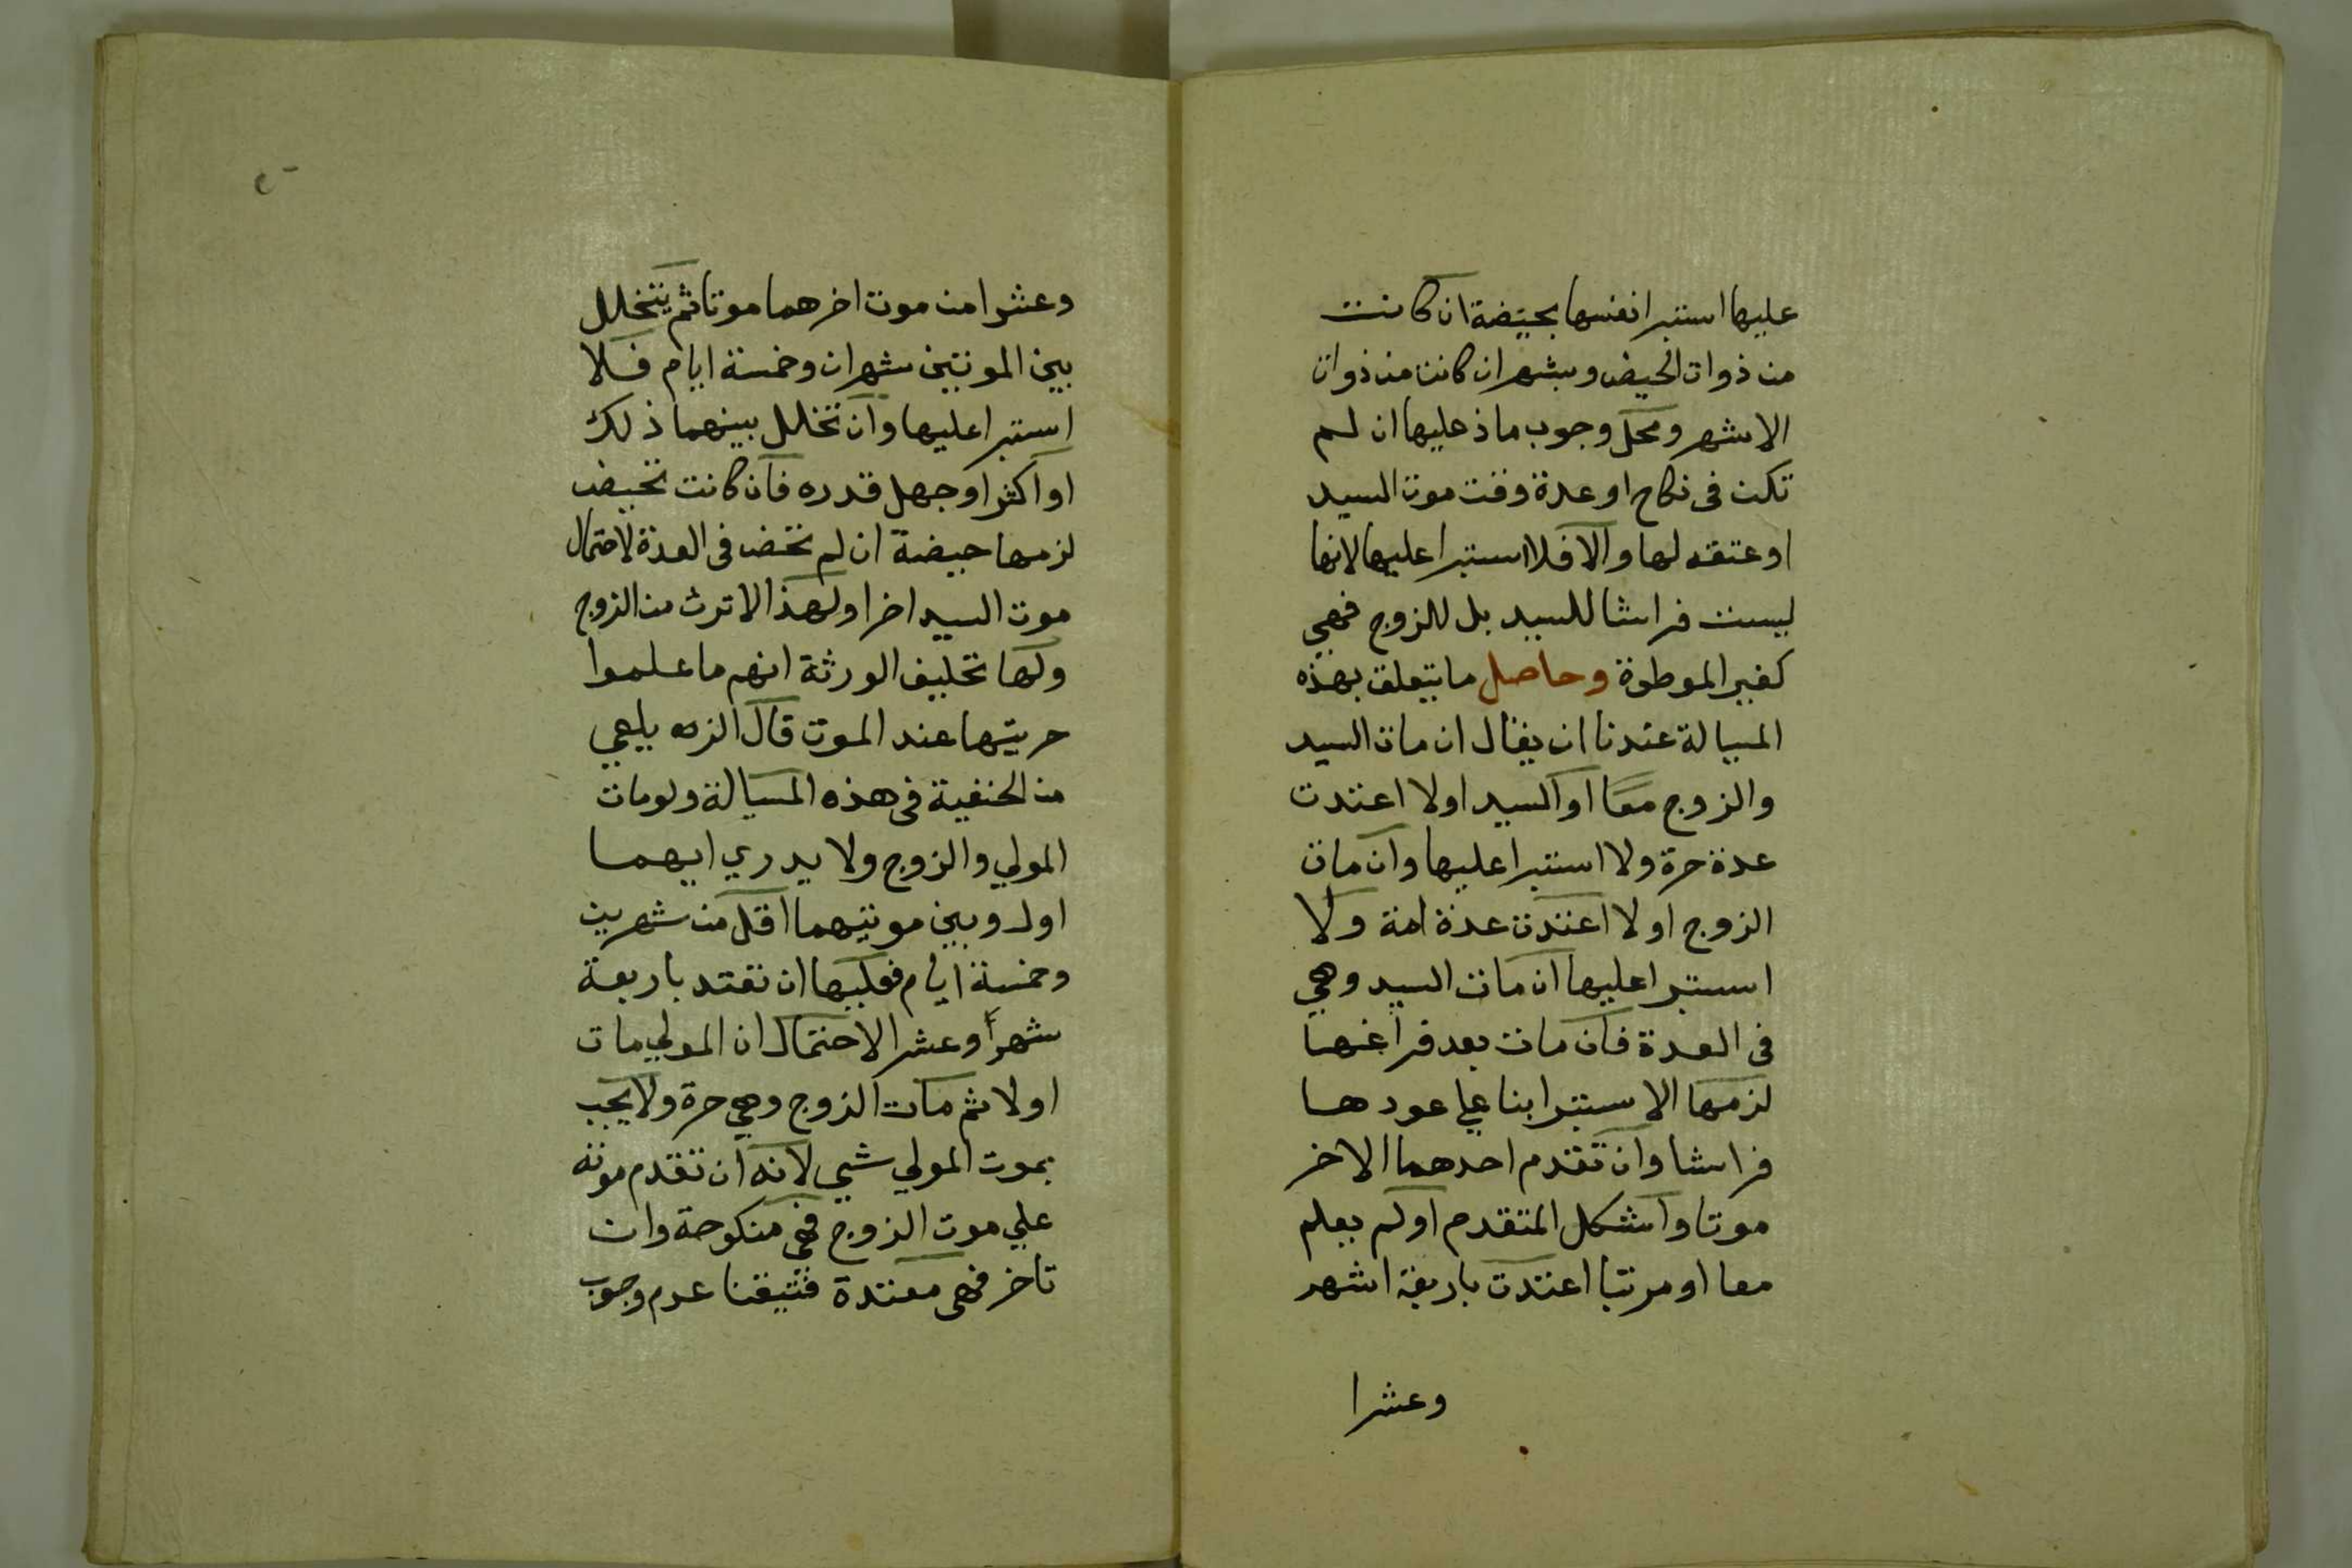 عليها استبرا نفسها بحيضة ان كانت
من ذوات الحيض وبشهر ان كانت من ذوات
الاشهر ومحل وجوب ماذ عليها ان لم
تكن فى نكاح او عدة وقت موت السيد
او عتقه لها والا فلا استبرا عليها لانها
ليست فراشا للسيد بل للزوج فهي
كغير الموطوة وحاصل ما يتعلق بهذه
المسالة عندنا ان يقال ان مات السيد
والزوج معا او السيد اولا اعتدت
عدة حرة ولا استبرا عليها وان مات
الزوج اولا اعتدت عدة امة ولا
استبرا عليها ان مات السيد وهي
فى العدة فان مات بعد فراغها
لزمها الاستبرا بنا علي عودها
فراشا وان تقدم احدهما الاخر
موتا واشكل المتقدم او لم يعلم
معا او مرتبا اعتدت باربعة اشهر
وعشرا
وعشرا من موت اخرهما موتا ثم يتخلل
بين الموتين شهران وخمسة ايام فلا
استبرا عليها وان تخلل بينهما ذلك
او اكثر او جهل قدره فان كانت تحيض
لزمها حيضة ان لم تحض فى العدة لاحتمال
موت السيد اخرا ولهذا لا ترث من الزوج
ولها تحليف الورثة انهم ما علموا
حريتها عند الموت قال الزيلعي
من الحنفية فى هذه المسالة ولو مات
المولي والزوج ولا يدري ايهما
اول وبين موتيهما اقل من شهرين
وخمسة ايام فعليها ان تعتد باربعة
شهرا وعشرا لاحتمال ان المولي مات
اولا ثم مات الزوج وهي حرة ولا يجب
بموت المولي شي لانه ان تقدم موته
علي موت الزوج فهي منكوحة وان
تاخر فهى معتدة فتيقنا عدم وجوب